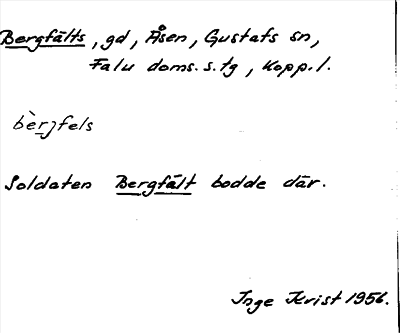 Bergfälts, gd, Åsen, Gustafs sn,
Falu doms. s. tg, Kopp. l.
bèrjfels
Soldaten Bergfält bodde där.
Inge Krist 1956.